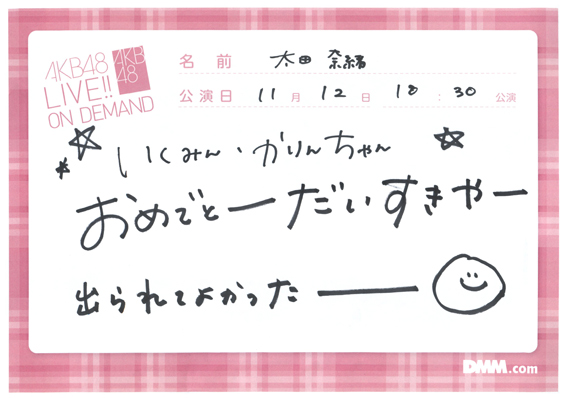 AKB48
LIVE!!
ON DEMAND
AKB
48
名前 太田 奈緒
公演日 11月 12日 18:30 公演
いくみん・かりんちゃん
おめでとーだいすきやー
出られてよかったー
DMM.com